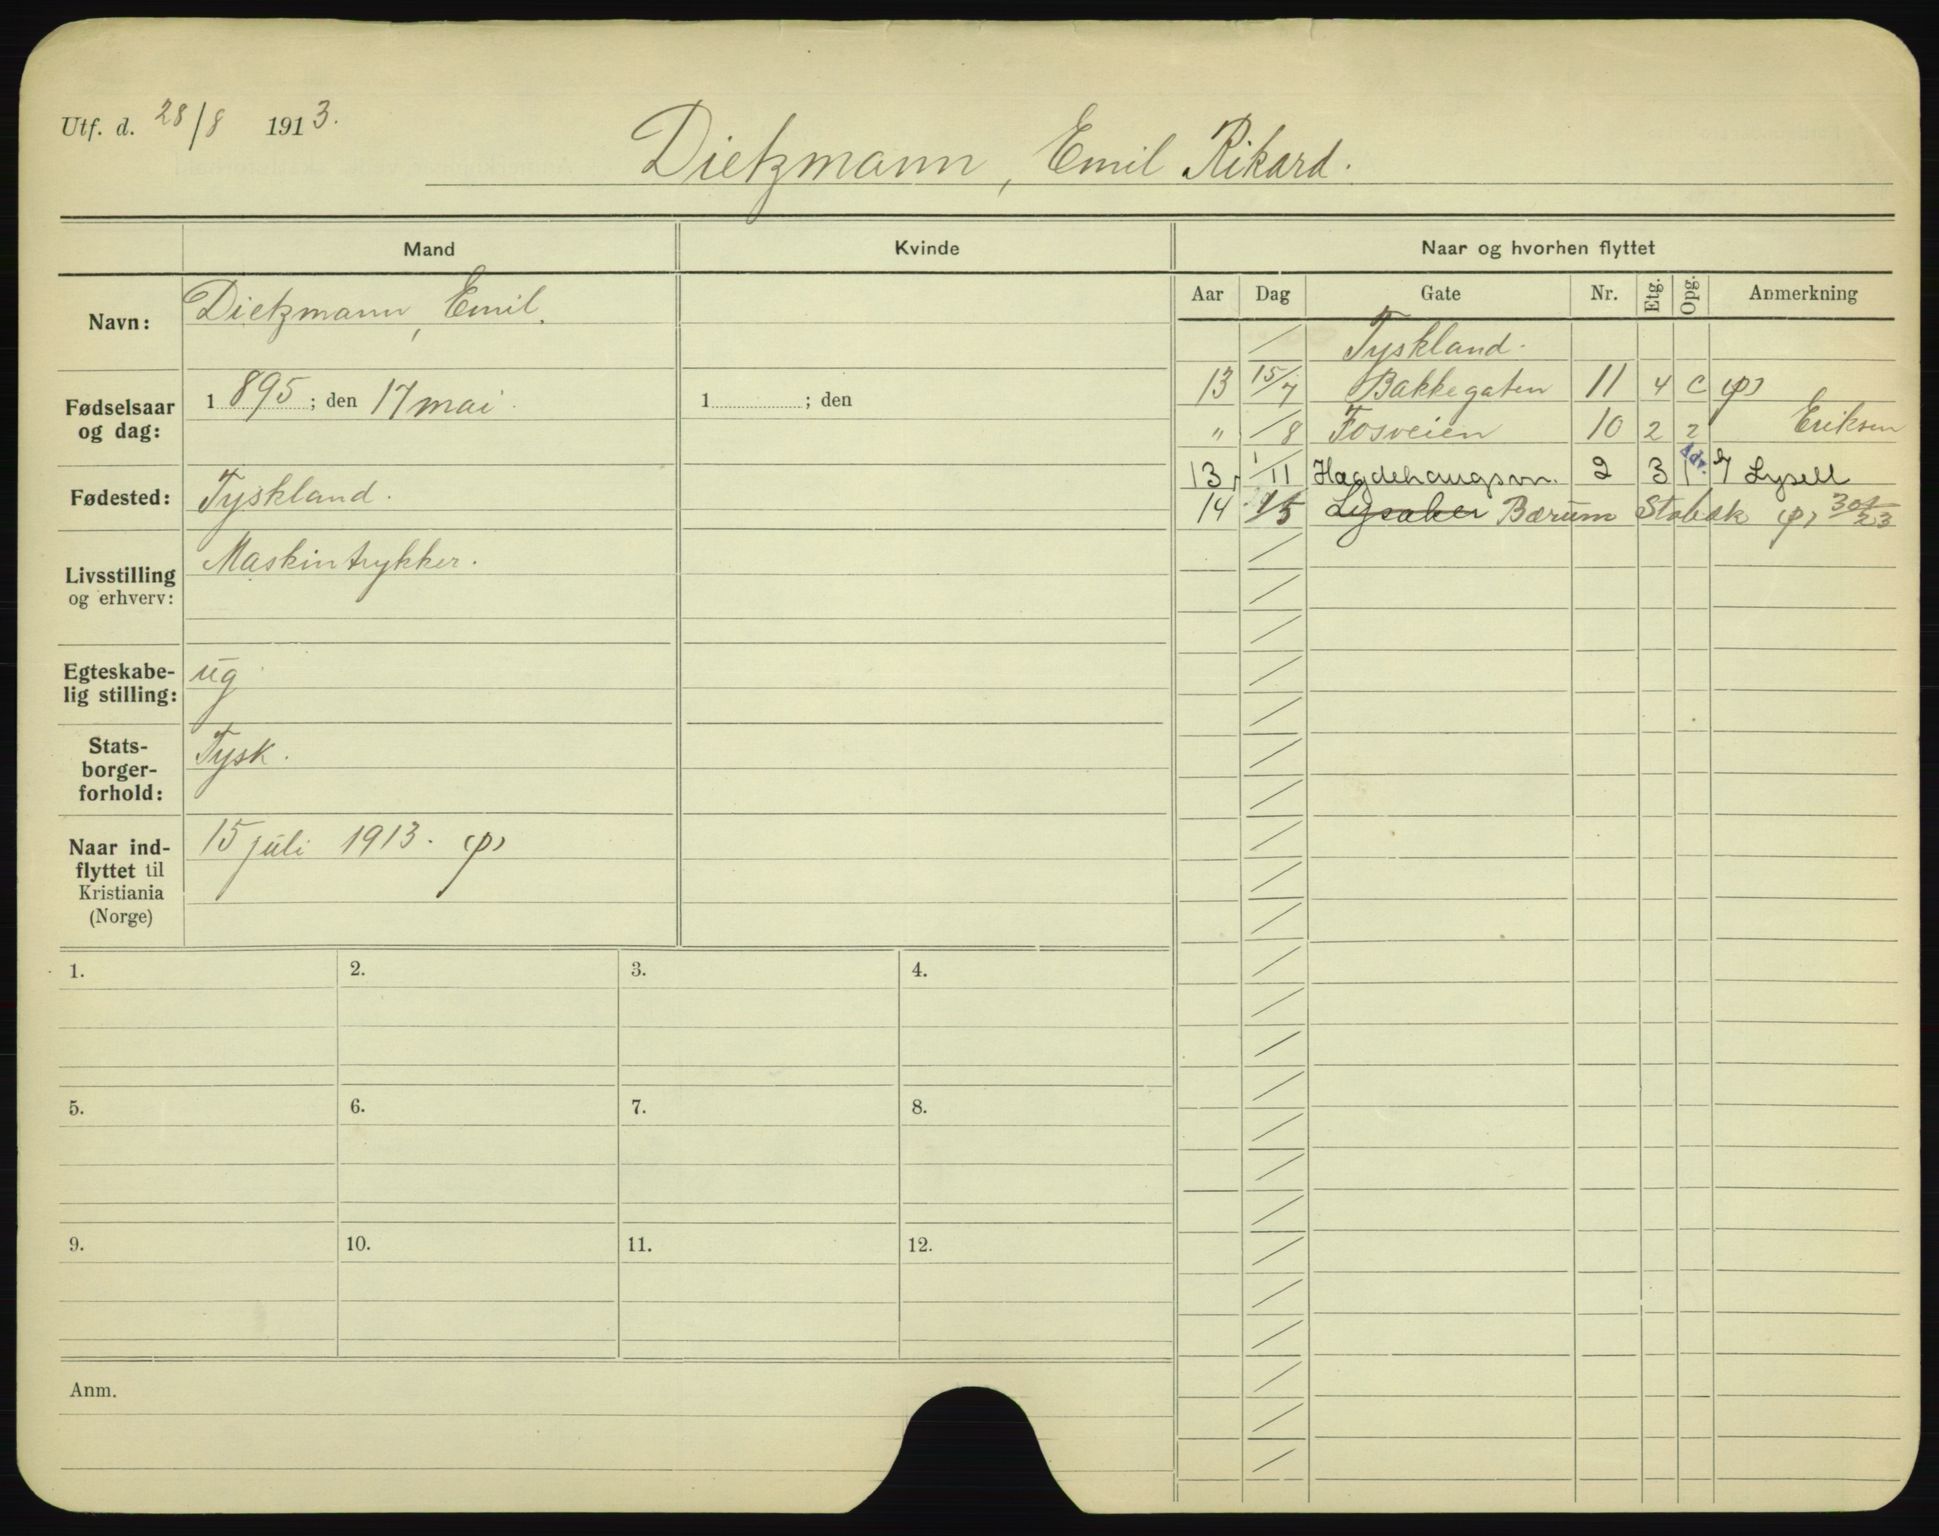 Utf. d. 28/8 1913.
Dietzmann, Emil Rikard.
Mand Kvinde Naar og hvorhen flyttet
Aar Dag Gate Nr. Etg. Opg. Anmerkning
Navn: Dietzmann, Emil.
Fødselsaar og dag: 1895; den 17 mai. 1 ; den
Fødested: Tyskland.
Livsstilling og erhverv: Maskintrykker.
Egteskabe-
lig stilling: ug
Stats-
borger-
forhold: Tysk.
Naar ind-
flyttet til
Kristiania
(Norge) 15 juli 1913. (p)
/ Tyskland.
13 15/7 Bakkegaten 11 4 C (p)
" /8 Fosveien 10 2 2 Eriksen
13 1/11 Hægdehaugsvn. 2 3 1 Adr. Lysell
14 1/5 Lysaker Bærum Stabæk (p)
1. 2. 3. 4.
5. 6. 7. 8.
9. 10. 11. 12.
Anm.